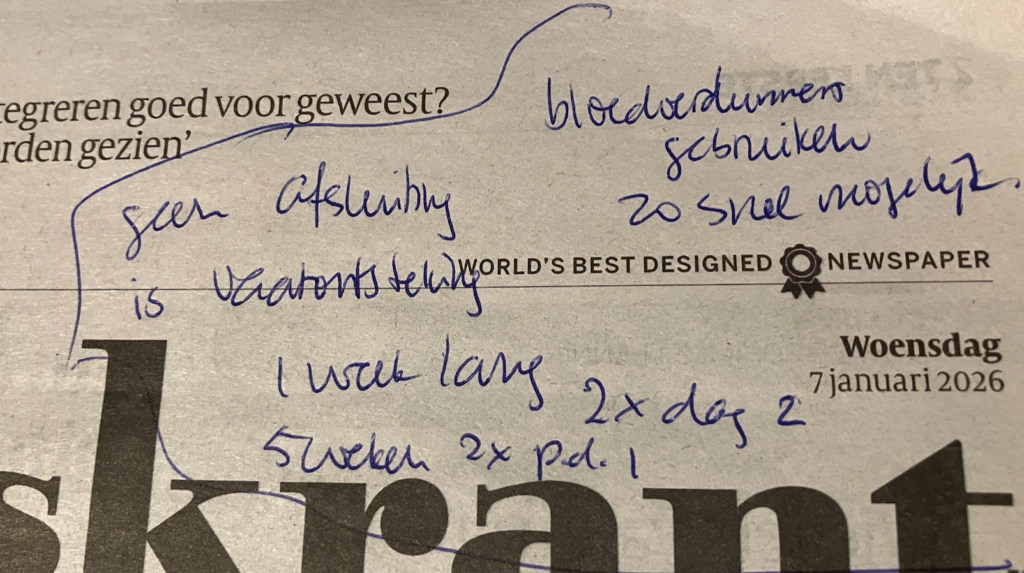 tegreren goed voor geweest?
rden gezien’
bloedverdunners
gebruiken
zo snel mogelijk.
geen afsluiting
is vaatontsteking
WORLD'S BEST DESIGNED NEWSPAPER
Woensdag
7 januari 2026
1 week lang 2x dag 2
5 weken 2x p.d. 1
skrant